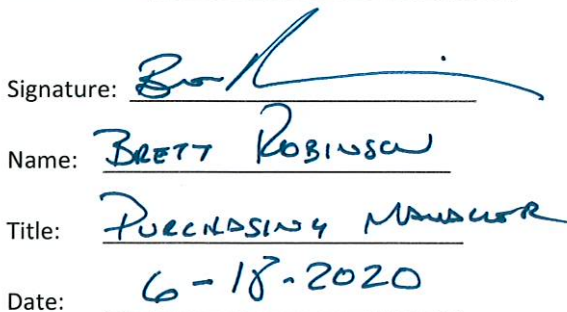 Signature:
Name: BRETT ROBINSON
Title: PURCHASING MANAGER
Date: 6-18-2020